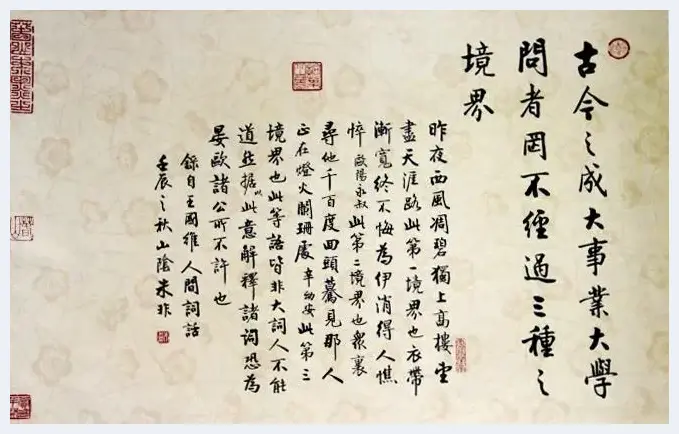 古今之成大事業大學
問者罔不經過三種之
境界
昨夜西風凋碧獨上高樓望
盡天涯路此第一境界也衣帶
漸寬終不悔為伊消得人憔
悴歐陽永叔此第二境界也衆裏
尋他千百度回頭驀見那人
正在燈火闌珊處辛幼安此第三
境界也此等語皆非大詞人不能
道然據以此意解釋諸詞恐為
晏歐諸公所不許也
錄自王國維人間詞話
壬辰之秋山陰非